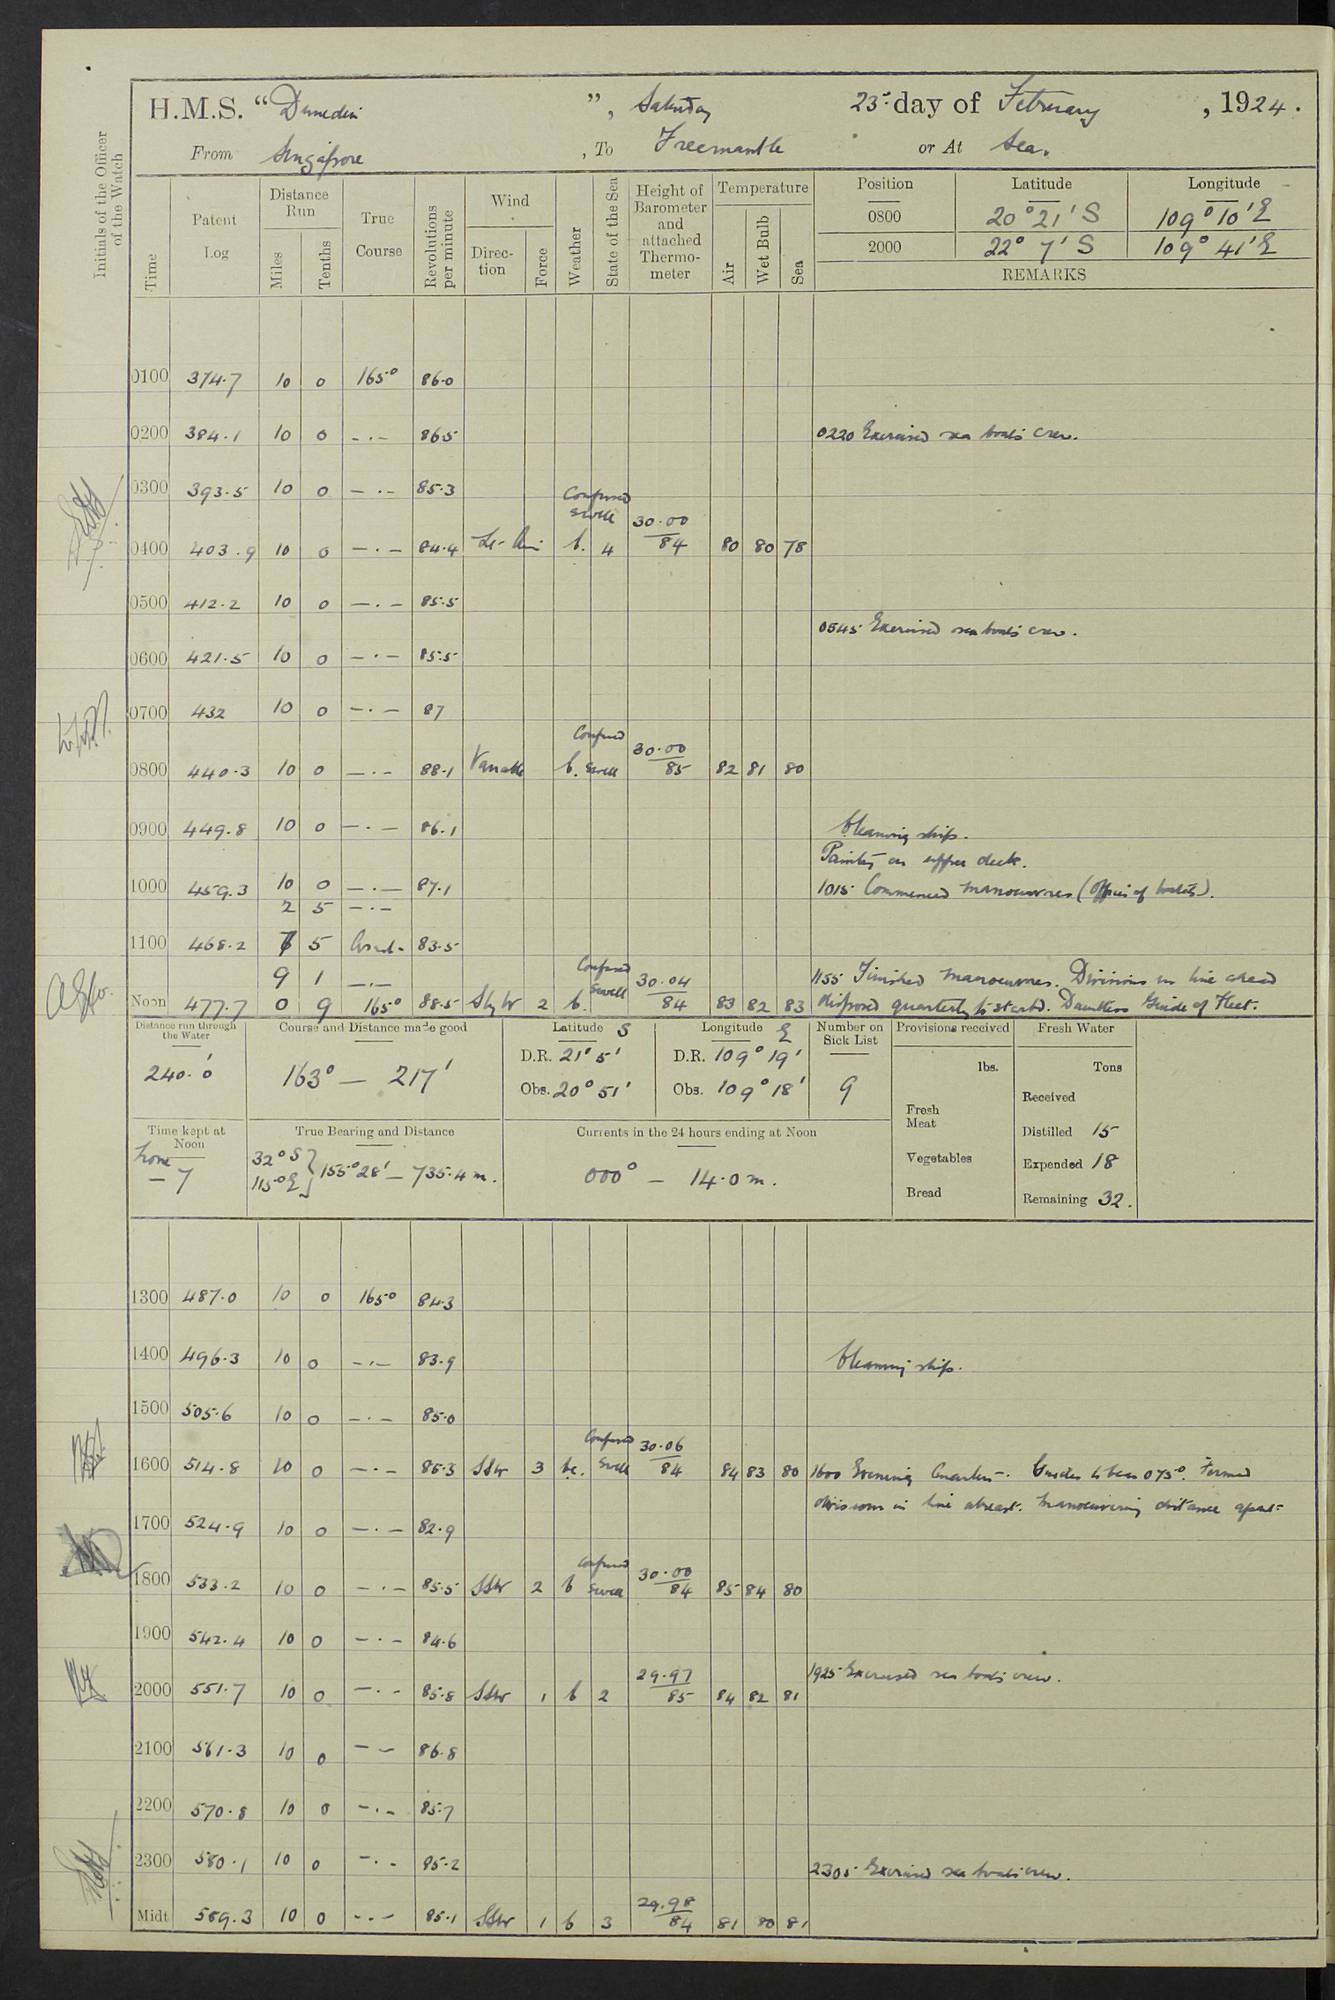 H.M.S. "Dunedin", Saturday 23rd day of February, 1924.
From Singapore, To Freemantle or At Sea.
Initials of the Officer of the Watch
Time Patent Log Distance Run Miles Tenths True Course Revolutions per minute Wind Direction Force Weather State of the Sea Height of Barometer and attached Thermometer Temperature Air Wet Bulb Sea
Position Latitude Longitude
0800 20° 21' S 109° 10' E
2000 22° 7' S 109° 41' E
REMARKS
0100 374.7 10 0 165° 86.0
0200 384.1 10 0 -.- 86.5 0220 Exercised sea boat's crew.
0300 393.5 10 0 -.- 85.3
Confused Swell
0400 403.9 10 0 -.- 84.4 b. 4 30.00/84 80 80 78
0500 412.2 10 0 -.- 85.5
0545 Exercised sea boat's crew.
0600 421.5 10 0 -.- 85.5
0700 432 10 0 -.- 87
0800 440.3 10 0 -.- 88.1 Variable b. Confused Swell 30.00/85 82 81 80
0900 449.8 10 0 -.- 86.1 Cleaning ship.
Painting on upper deck.
1000 459.3 10 0 -.- 87.1 1015 Commenced manoeuvres
2 5 -.-
1100 468.2 7 5 83.5
9 1 -.- 1155 Finished manoeuvres. Divisions in line ahead
Noon 477.7 0 9 165° 88.5 S by W 2 b. Confused Swell 30.04/84 83 82 83 disposed quarterly to starbd. Dauntless Guide of Fleet.
Distance run through the Water 240.0'
Course and Distance made good 163° - 217'
Latitude S
D.R. 21° 5'
Obs. 20° 51'
Longitude E
D.R. 109° 19'
Obs. 109° 18'
Number on Sick List 9
Provisions received
lbs.
Fresh Meat
Vegetables
Bread
Fresh Water
Tons
Received
Distilled 15
Expended 18
Remaining 32.
Time kept at Noon
Zone -7
True Bearing and Distance
32° S
115° E } 155° 28' - 735.4 m.
Currents in the 24 hours ending at Noon
000° - 14.0 m.
1300 487.0 10 0 165° 84.3
1400 496.3 10 0 -.- 83.9 Cleaning ship.
1500 505.6 10 0 -.- 85.0
1600 514.8 10 0 -.- 85.3 SSW 3 bc. Confused Swell 30.06/84 84 83 80 1600 Evening Quarters. Guides to bear 075°. Formed
divisions in line abreast. Manoeuvring distance apart.
1700 524.9 10 0 -.- 82.9
1800 533.2 10 0 -.- 85.5 SSW 2 b Confused Swell 30.00/84 85 84 80
1900 542.4 10 0 -.- 84.6
1925 Exercised sea boat's crew.
2000 551.7 10 0 -.- 85.8 SSW 1 b 2 29.97/85 84 82 81
2100 561.3 10 0 -- 86.8
2200 570.8 10 0 -.- 85.7
2300 580.1 10 0 -.- 85.2 2305 Exercised sea boat's crew.
Midt 589.3 10 0 -.- 85.1 SSW 1 b 3 29.98/84 81 80 81